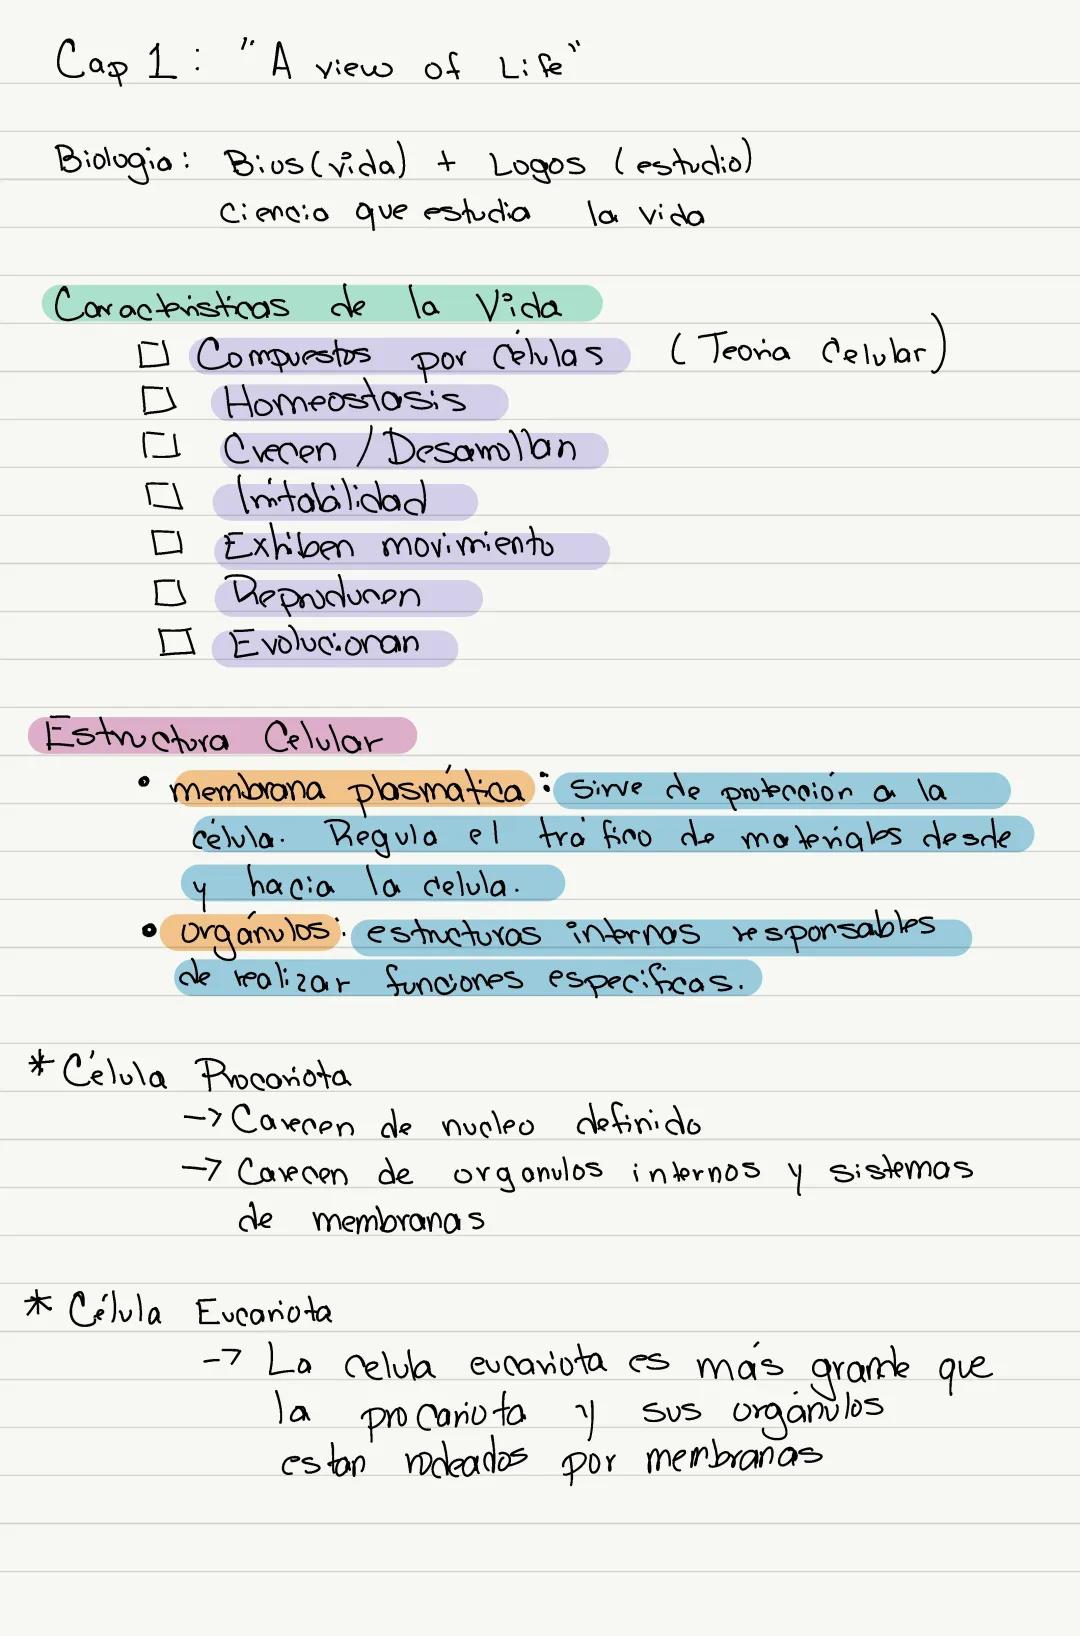 Cap 1 : "A view of Life"
Biologia: Bios (vida) + Logos (estudio)
ciencia que estudia la vida
Caracteristicas de la Vida
□ Compuestos por células (Teoria Celular)
□ Homeostasis
□ Crecen / Desarrollan
□ Irritabilidad
□ Exhiben movimiento
□ Reproducen
□ Evolucionan
Estructura Celular
• membrana plasmática: sirve de protección a la
célula. Regula el tráfico de materiales desde
y hacia la celula.
• orgánulos: estructuras internas responsables
de realizar funciones especificas.
* Célula Procariota
-> Carecen de nucleo definido
-> Carecen de organulos internos y sistemas
de membranas
* Célula Eucariota
-> La celula eucariota es más grande que
la procariota y sus orgánulos
estan rodeados por membranas